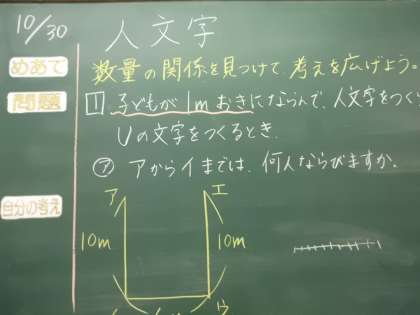 10/30
人文字
めあて
数量の関係を見つけて、考えを広げよう。
問題
1 子どもが1mおきにならんで、人文字をつく
Uの文字をつくるとき、
ア アからイまでは、何人ならびますか。
自分の考え
ア エ
10m 10m
ウ